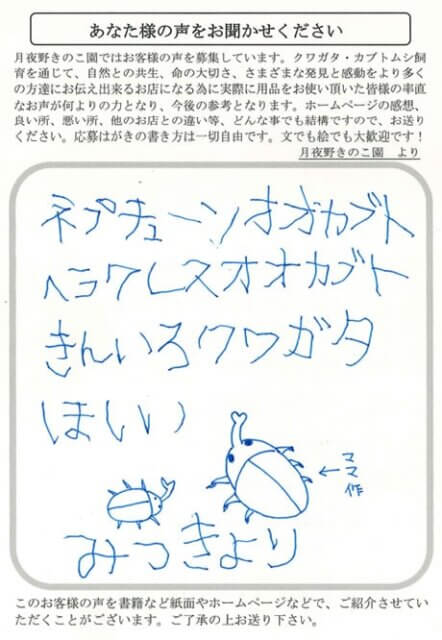 あなた様の声をお聞かせください
月夜野きのこ園ではお客様の声を募集しています。クワガタ・カブトムシ飼
育を通じて、自然との共生、命の大切さ、さまざまな発見と感動をより多く
の方達にお伝え出来るお店になる為に実際に用品をお使い頂いた皆様の率直
なお声が何よりの力となり、今後の参考となります。ホームページの感想、
良い所、悪い所、他のお店との違い等、どんな事でも結構ですので、お送り
ください。応募はがきの書き方は一切自由です。文でも絵でも大歓迎です！
月夜野きのこ園　より
ネプチューンオオカブト
ヘラクレスオオカブト
きんいろクワガタ
ほしい
ママ作
みつきより
このお客様の声を書籍など紙面やホームページなどで、ご紹介させてい
ただくことがございます。ご了承の上お送り下さい。